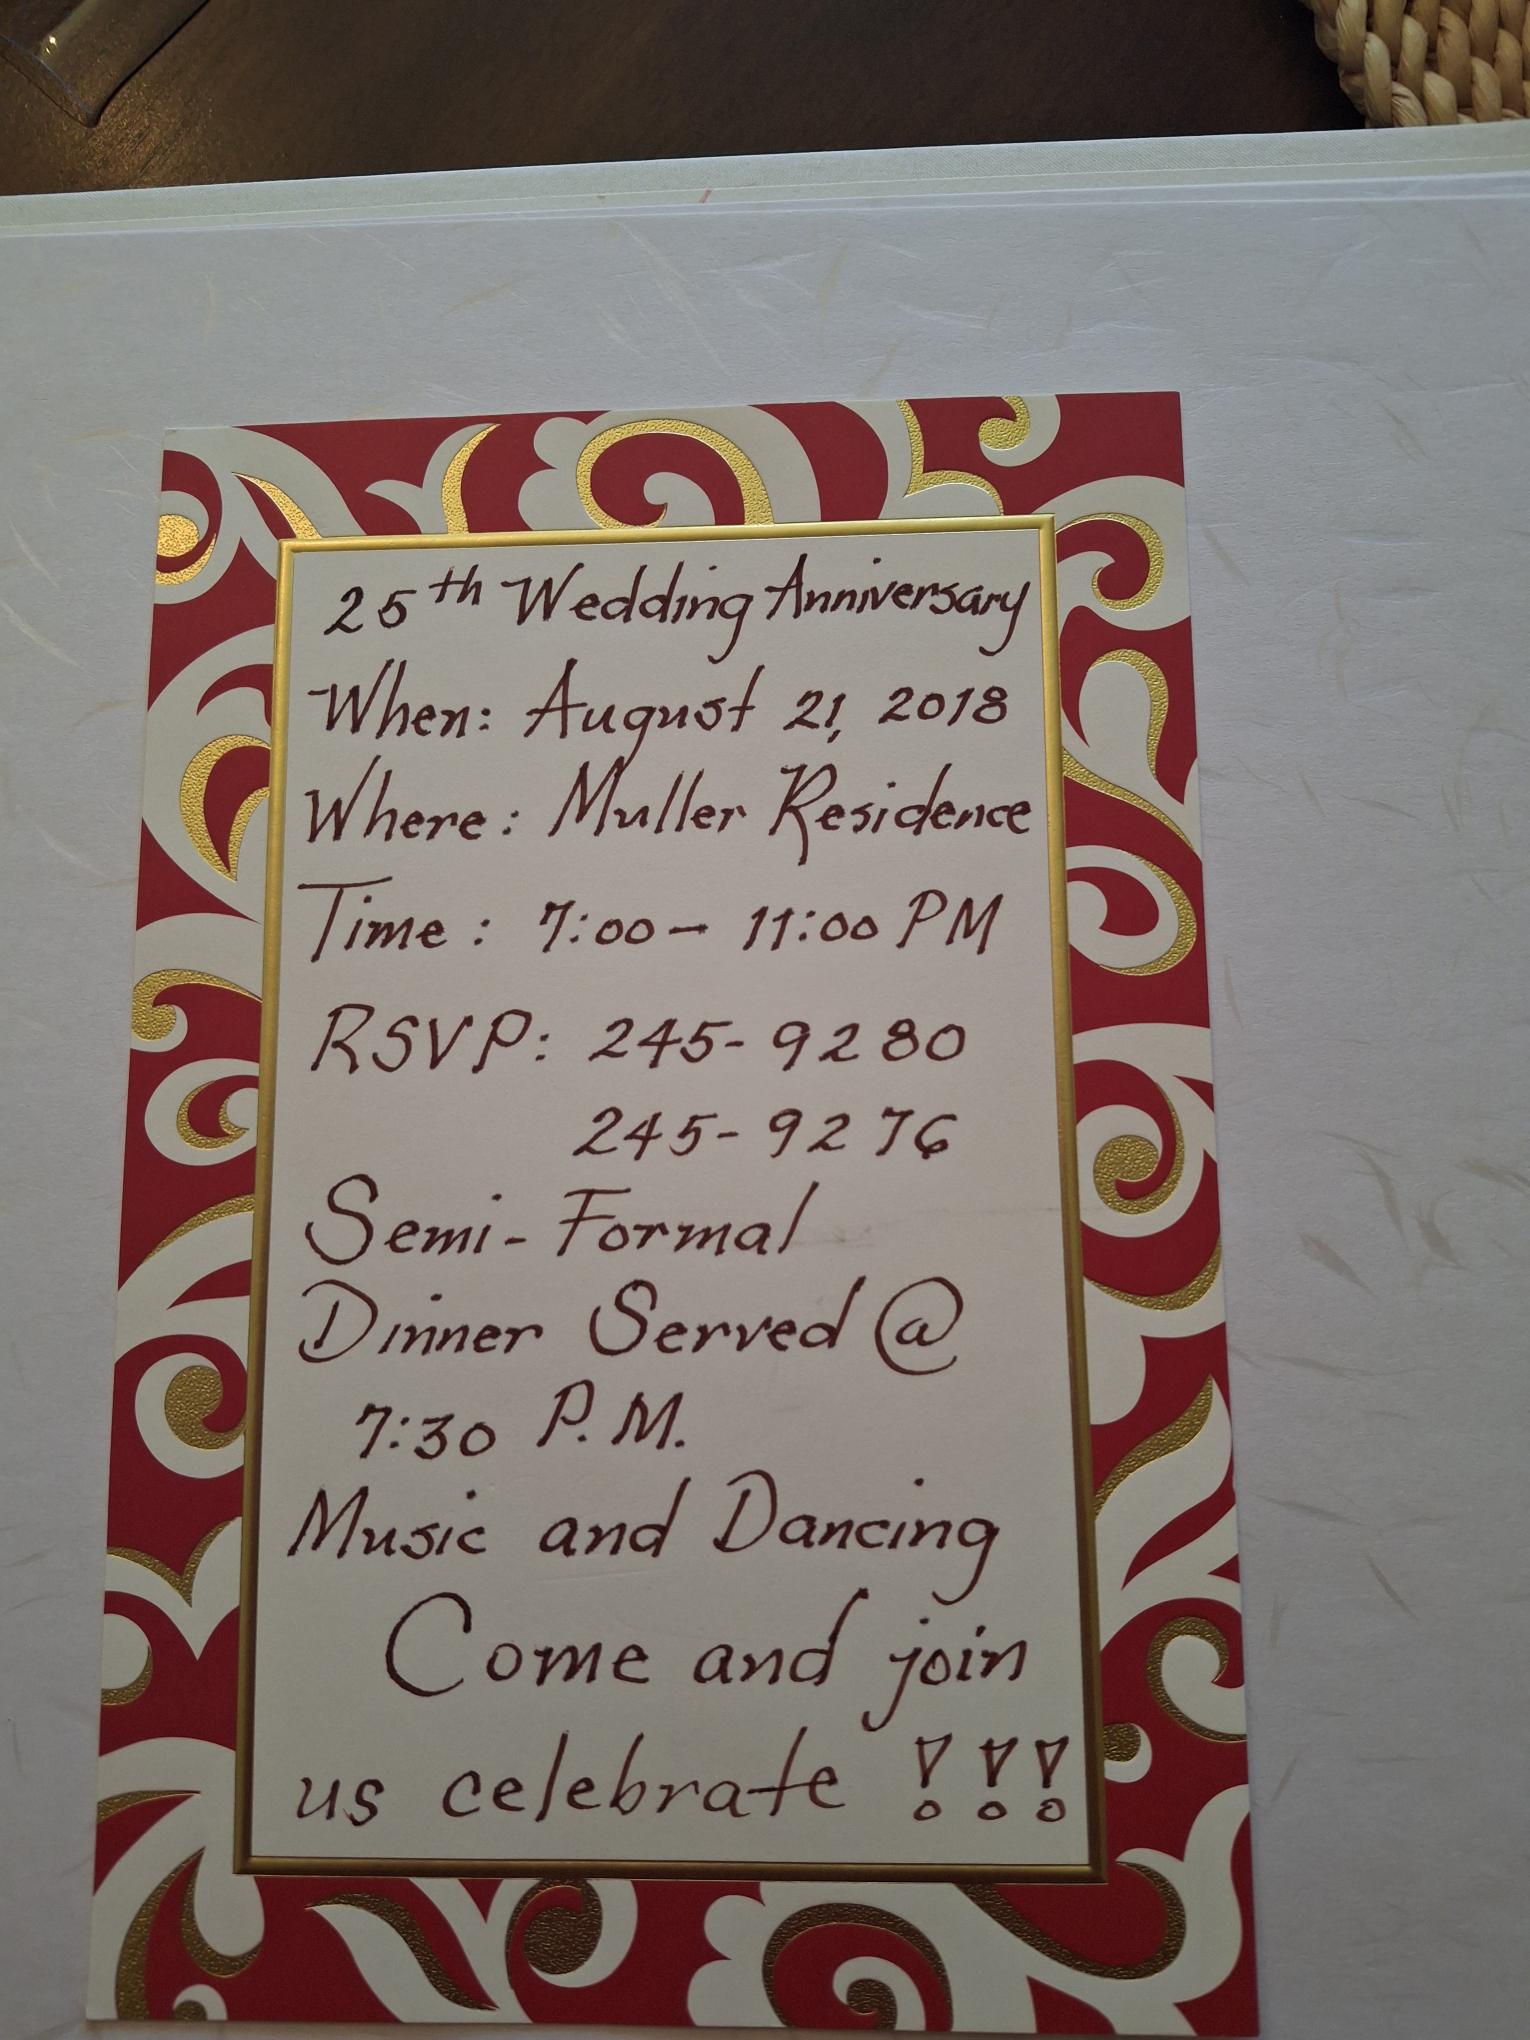 25th Wedding Anniversary
When: August 21, 2018
Where: Muller Residence
Time: 7:00 - 11:00 PM
RSVP: 245-9280
245-9276
Semi-Formal
Dinner Served @
7:30 P.M.
Music and Dancing
Come and join
us celebrate !!!